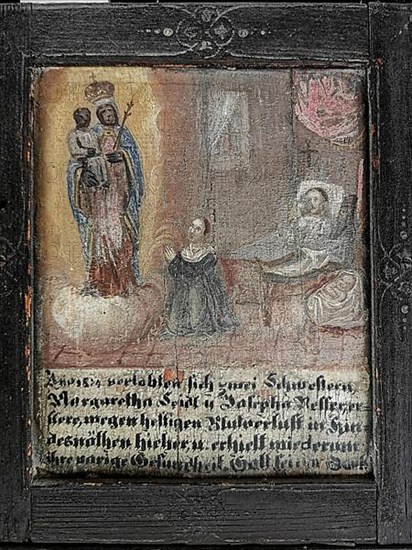 Ano 18 4 verlobten sich zwei Schwestern
Margaretha Seidl u Josepha Nesser er-
stere, wegen heftigen Blutverlust in Kin
desnöthen hieher u. erhielt wiederum
ihre vorige Gesundheit, Gott sei Dank